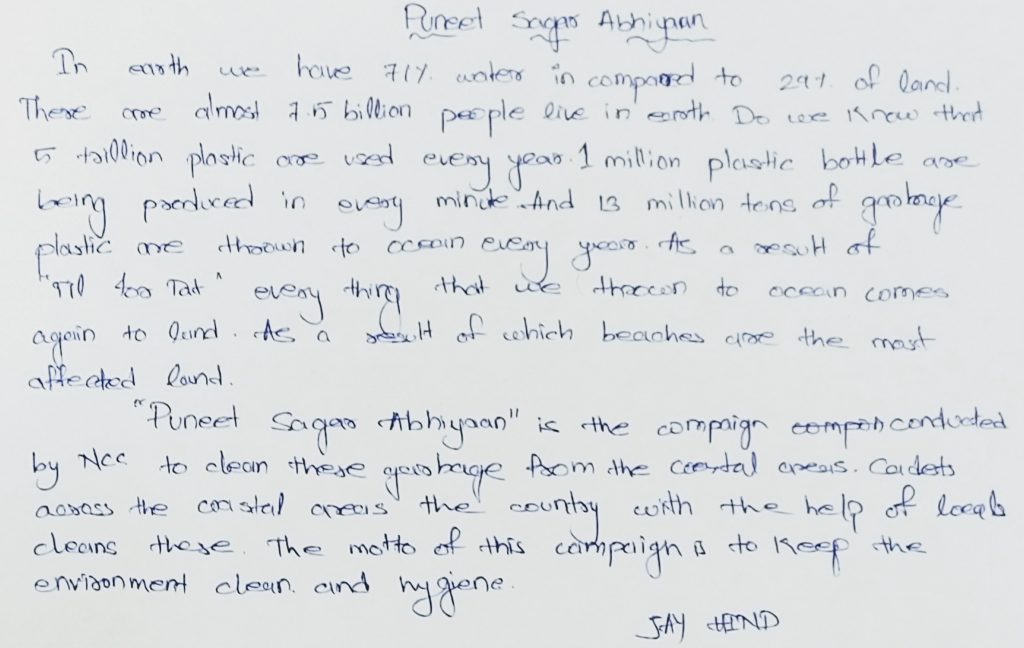 Puneet Sagar Abhiyaan
In earth we have 71% water in compared to 29% of land.
There are almost 7.5 billion people live in earth. Do we know that
5 trillion plastic are used every year. 1 million plastic bottle are
being produced in every minute. And 13 million tons of garbage
plastic are thrown to ocean every year. As a result of
"Tit for Tat" every thing that we thrown to ocean comes
again to land. As a result of which beaches are the most
affected land.
"Puneet Sagar Abhiyaan" is the campaign conducted
by NCC to clean these garbage from the coastal areas. Cadets
across the coastal areas the country with the help of locals
cleans these. The motto of this campaign is to keep the
environment clean and hygiene.
JAY HIND